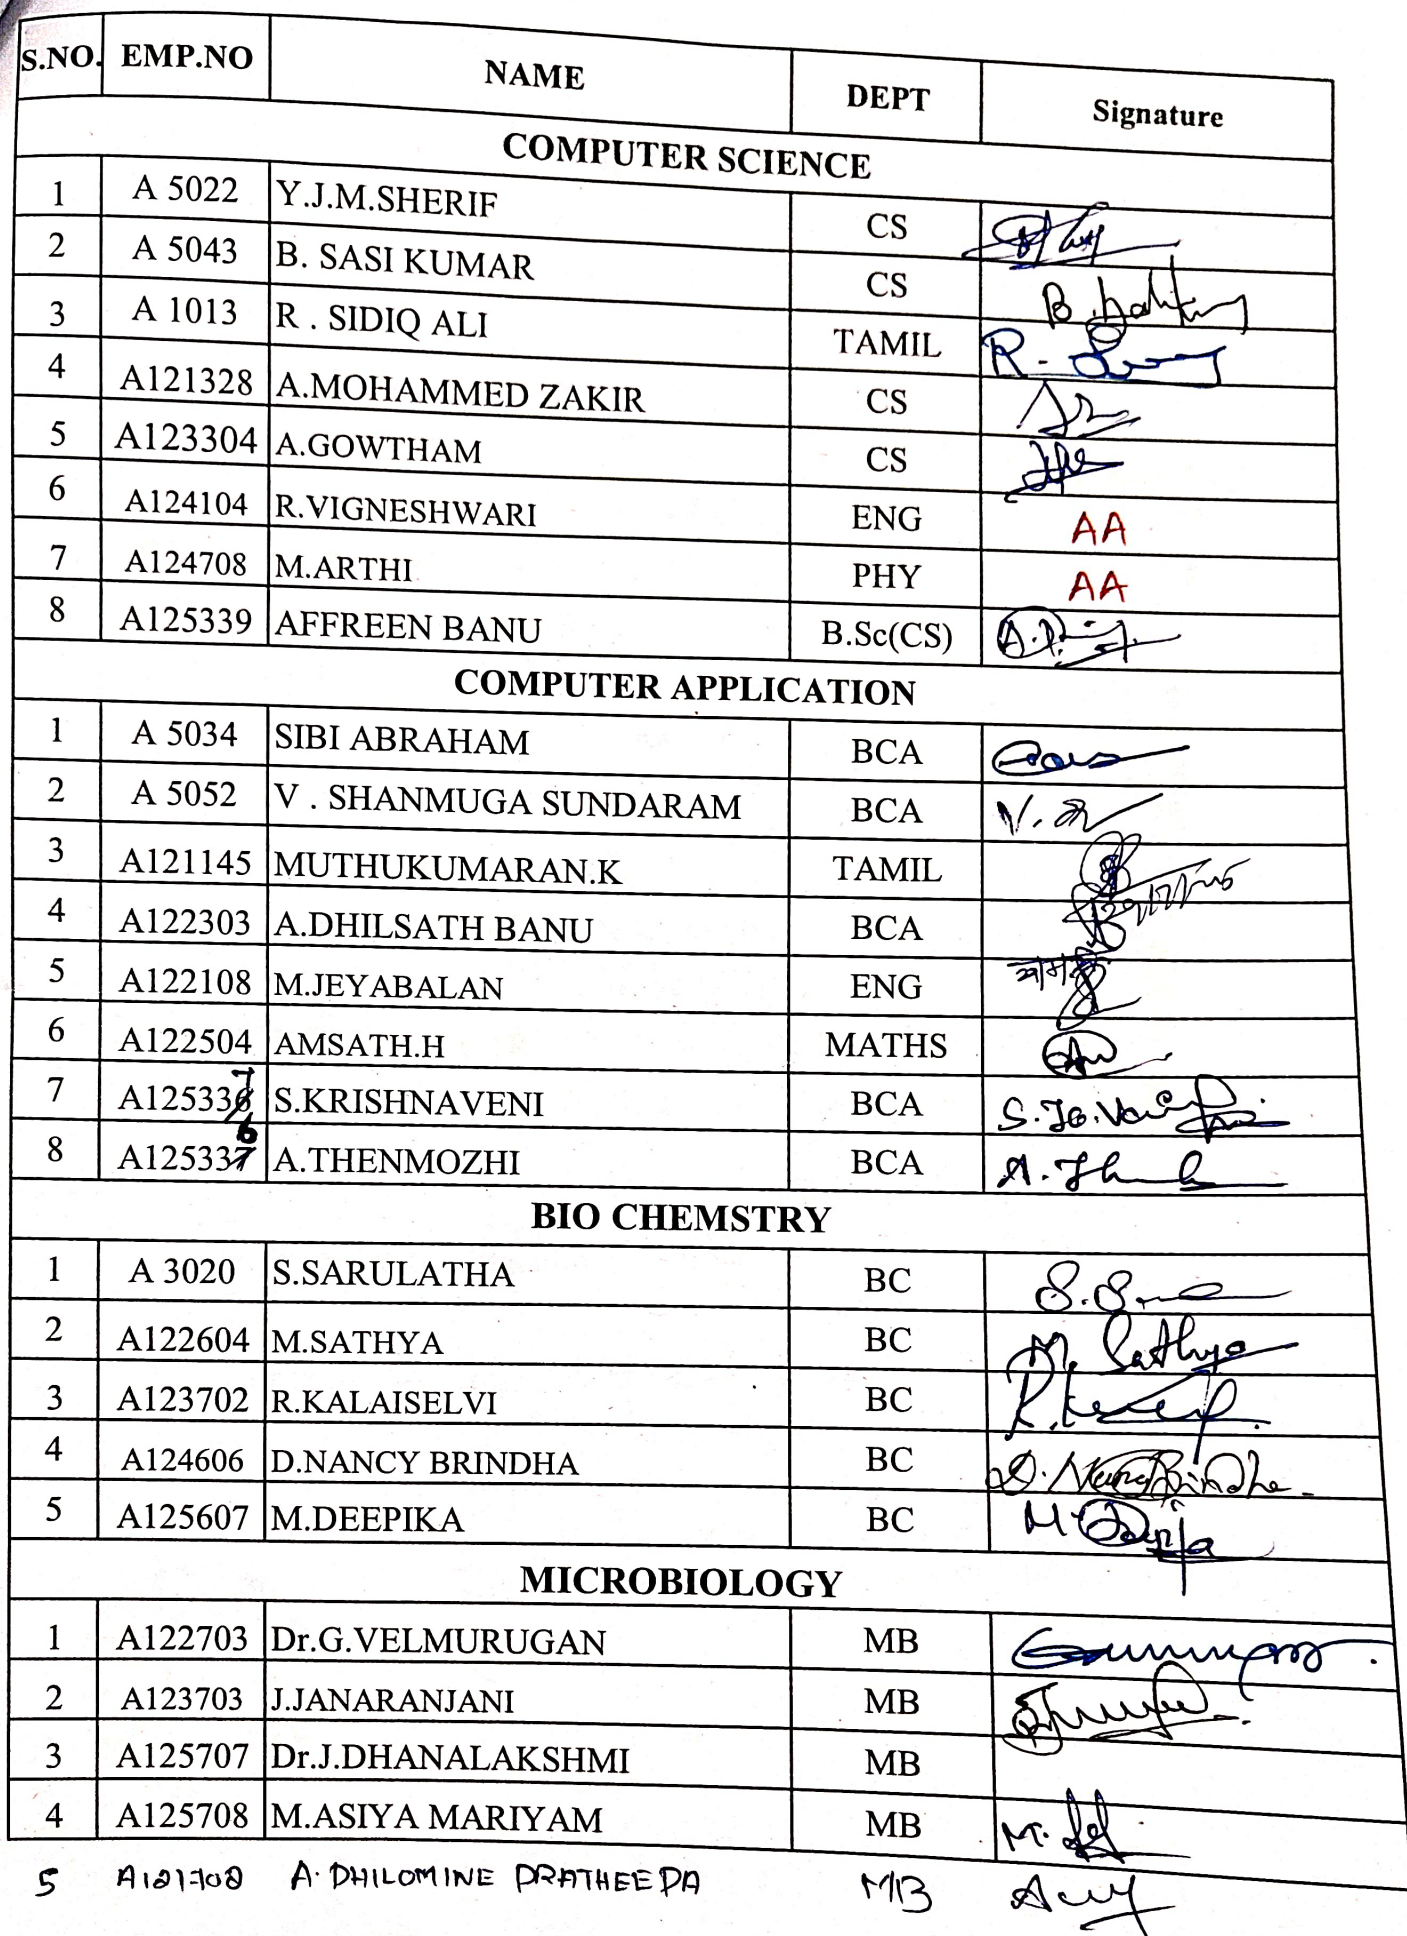 S.NO. EMP.NO NAME DEPT Signature
COMPUTER SCIENCE
1 A 5022 Y.J.M.SHERIF CS
2 A 5043 B. SASI KUMAR CS B.
3 A 1013 R . SIDIQ ALI TAMIL R.
4 A121328 A.MOHAMMED ZAKIR CS
5 A123304 A.GOWTHAM CS
6 A124104 R.VIGNESHWARI ENG AA
7 A124708 M.ARTHI PHY AA
8 A125339 AFFREEN BANU B.Sc(CS)
COMPUTER APPLICATION
1 A 5034 SIBI ABRAHAM BCA
2 A 5052 V . SHANMUGA SUNDARAM BCA V.
3 A121145 MUTHUKUMARAN.K TAMIL
4 A122303 A.DHILSATH BANU BCA
5 A122108 M.JEYABALAN ENG
6 A122504 AMSATH.H MATHS
7 A125337 S.KRISHNAVENI BCA S.
8 A125336 A.THENMOZHI BCA A.
BIO CHEMSTRY
1 A 3020 S.SARULATHA BC S.
2 A122604 M.SATHYA BC M. Sathya
3 A123702 R.KALAISELVI BC R.
4 A124606 D.NANCY BRINDHA BC D. Nancy Brindha
5 A125607 M.DEEPIKA BC M.
MICROBIOLOGY
1 A122703 Dr.G.VELMURUGAN MB
2 A123703 J.JANARANJANI MB
3 A125707 Dr.J.DHANALAKSHMI MB
4 A125708 M.ASIYA MARIYAM MB M.
5 A121702 A. PHILOMINE PRATHEEPA MB